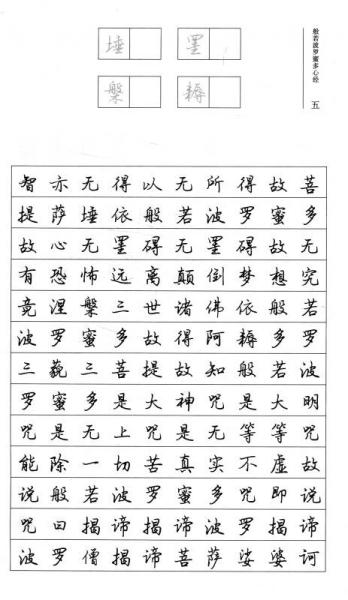 般若波罗蜜多心经 五
埵 罣
槃 耨
智亦无得以无所得故菩
提萨埵依般若波罗蜜多
故心无罣碍无罣碍故无
有恐怖远离颠倒梦想究
竟涅槃三世诸佛依般若
波罗蜜多故得阿耨多罗
三藐三菩提故知般若波
罗蜜多是大神咒是大明
咒是无上咒是无等等咒
能除一切苦真实不虚故
说般若波罗蜜多咒即说
咒曰揭谛揭谛波罗揭谛
波罗僧揭谛菩萨娑婆诃